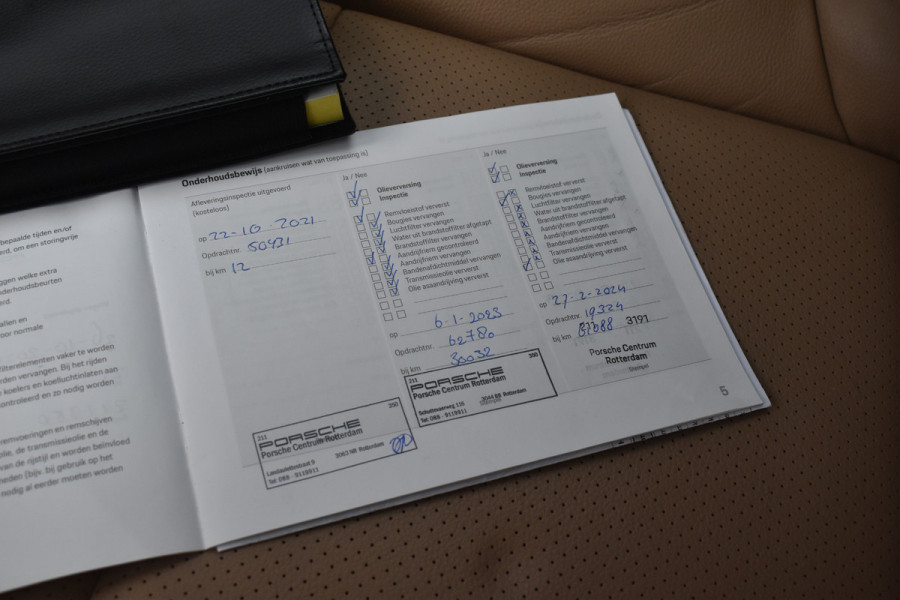 bepaalde tijden en/of
ard, om een storingvrije
ggen welke extra
nderhoudsbeurten
erd.
allen en
oor normale
filterelementen vaker te worden
rden vervangen. Bij het rijden
koelers en koelluchtinlaten aan
controleerd en zo nodig worden
remvoeringen en remschijven
olie, de transmissieolie en de
van de rijstijl en worden beïnvloed
heden (bijv. bij gebruik op het
nodig al eerder moeten worden
Onderhoudsbewijs (aankruisen wat van toepassing is)
Afleveringsinspectie uitgevoerd
(kosteloos)
op 22-10-2021
Opdrachtnr. 50931
bij km 12
211 350
PORSCHE
Porsche Centrum Rotterdam
3063 NR Rotterdam
Tel: 088 - 9119911
Ja / Nee
Olieverversing
Inspectie
Remvloeistof ververst
Bougies vervangen
Luchtfilter vervangen
Water uit brandstoffilter afgetapt
Brandstoffilter vervangen
Aandrijfriem gecontroleerd
Aandrijfriem vervangen
Bandenafdichtmiddel vervangen
Transmissieolie ververst
Olie assandrijving ververst
op 6-1-2023
Opdrachtnr. 62780
bij km 30032
211 350
PORSCHE
Porsche Centrum Rotterdam
3044 BR Rotterdam
Stempel
Tel: 088 - 9119911
Ja / Nee
Olieverversing
Inspectie
Remvloeistof ververst
Bougies vervangen
Luchtfilter vervangen
Water uit brandstoffilter afgetapt
Brandstoffilter vervangen
Aandrijfriem gecontroleerd
Aandrijfriem vervangen
Bandenafdichtmiddel vervangen
Transmissieolie ververst
Olie assandrijving ververst
op 27-2-2024
Opdrachtnr. 19324
bij km
211 3191
Porsche Centrum
Rotterdam
Stempel
5